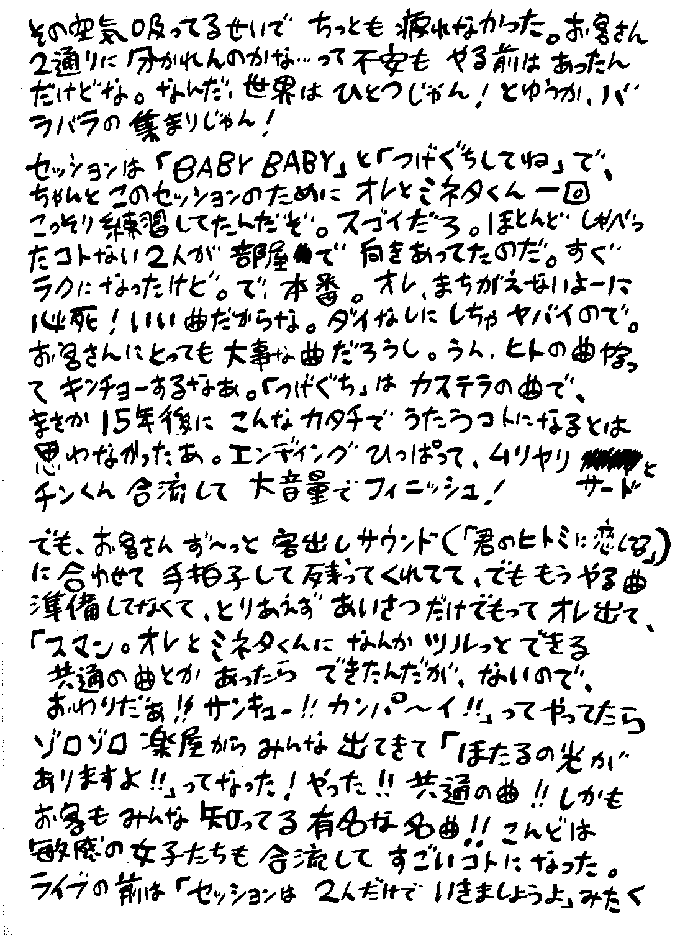 その空気吸ってるせいで ちっとも 疲れなかった。お客さん
2通りに分かれんのかな…って不安も やる前は あったん
だけどな。なんだ、世界は ひとつじゃん！とゆうか、バ
ラバラの集まりじゃん！
セッションは「BABY BABY」と「つげぐちしてね」で、
ちゃんと このセッションのために オレとミネタくん 一回
こっそり練習してたんだぞ。スゴイだろ。ほとんど しゃべっ
たコトない2人が 部屋で 向きあってたのだ。すぐ
ラクになったけど。で、本番。オレ、まちがえないよーに
必死！いい曲だからな。ダイなしにしちゃ ヤバイので。
お客さんにとっても 大事な曲だろうし。うん、ヒトの曲やっ
て キンチョーするなあ。「つげぐち」は カステラの曲で、
まさか 15年後に こんなカタチで うたうコトになるとは
思わなかったあ。エンディング ひっぱって、ムリヤリ サードと
チンくん 合流して 大音量でフィニッシュ！
でも、お客さん ず〜っと 客出しサウンド（「君のヒトミに恋してる」）
に合わせて 手拍子して 残ってくれてて、でももうやる曲
準備してなくて、とりあえず あいさつだけでもって オレ出て、
「スマン。オレとミネタくんに なんか ツルっと できる
共通の曲とか あったら できたんだが、ないので、
おわりだぁ!! サンキュー!! カンパ〜イ!!」ってやってたら
ゾロゾロ 楽屋から みんな 出てきて「ほたるの光が
ありますよ!!」ってなった！やった!! 共通の曲!! しかも
お客も みんな 知ってる 有名な 名曲!! こんどは
敏感の女子たちも 合流して すごいコトになった。
ライブの前は「セッションは 2人だけで いきましょうよ」みたく